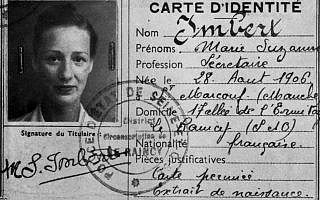 CARTE D'IDENTITÉ
Nom Imbert
Prénoms Marie Suzanne
Profession Secrétaire
Née le 28 Août 1906
St Marcouf (Manche)
Domicile 17 Allée de l'Ermitage
le Raincy (S&O)
Nationalité française.
Pièces justificatives.
Carte périmée
Extrait de naissance.
Signature du Titulaire
M. S. Imbert
LE RAINCY